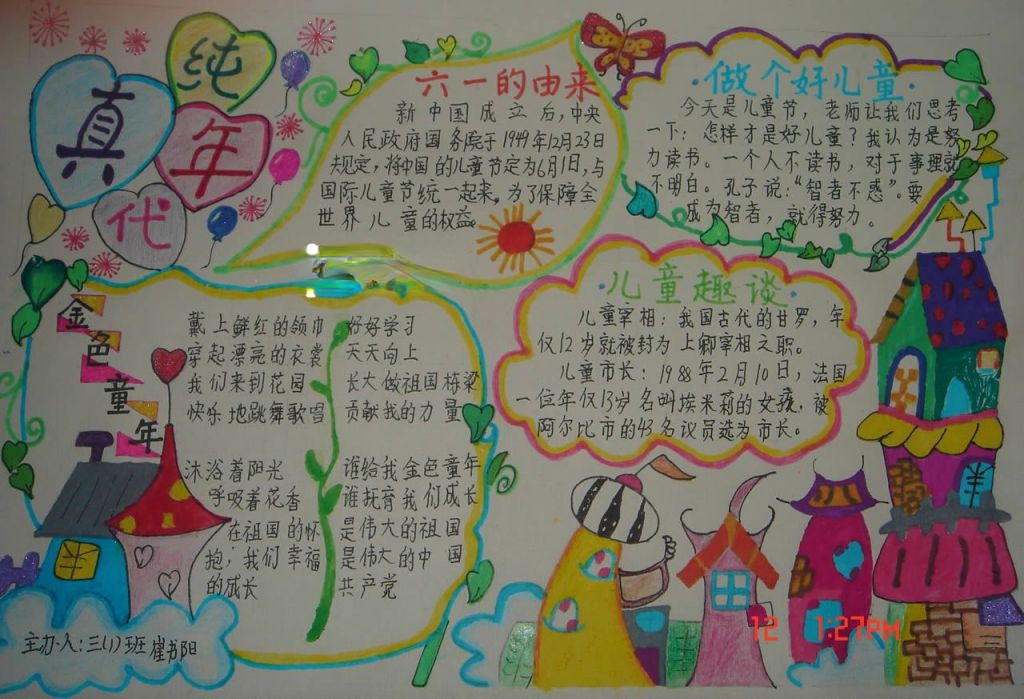 纯
真
年
代
六一的由来
新中国成立后,中央
人民政府国务院于1949年12月23日
规定,将中国的儿童节定为6月1日,与
国际儿童节统一起来。为了保障全
世界儿童的权益。
·做个好儿童·
今天是儿童节,老师让我们思考
一下:怎样才是好儿童?我认为是努
力读书。一个人不读书,对于事理就
不明白。孔子说:“智者不惑”。要
成为智者,就得努力。
·儿童趣谈·
儿童宰相:我国古代的甘罗,年
仅12岁就被封为上卿宰相之职。
儿童市长:1988年2月10日,法国
一位年仅13岁名叫埃米莉的女孩,被
阿尔比市的43名议员选为市长。
金色童年
戴上鲜红的领巾
穿起漂亮的衣裳
我们来到花园
快乐地跳舞歌唱
沐浴着阳光
呼吸着花香
在祖国的怀
抱;我们幸福
的成长
好好学习
天天向上
长大做祖国栋梁
贡献我的力量
谁给我金色童年
谁抚育我们成长
是伟大的祖国
是伟大的中国
共产党
主办人:三(1)班 崔书阳
12 1:27PM